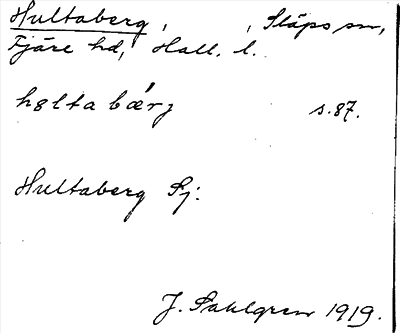 Hultaberg, , Släps sn,
Fjäre hd, Hall. l.
hɵlta bærj s. 87.
Hultaberg Sj:
J. Sahlgren 1919.